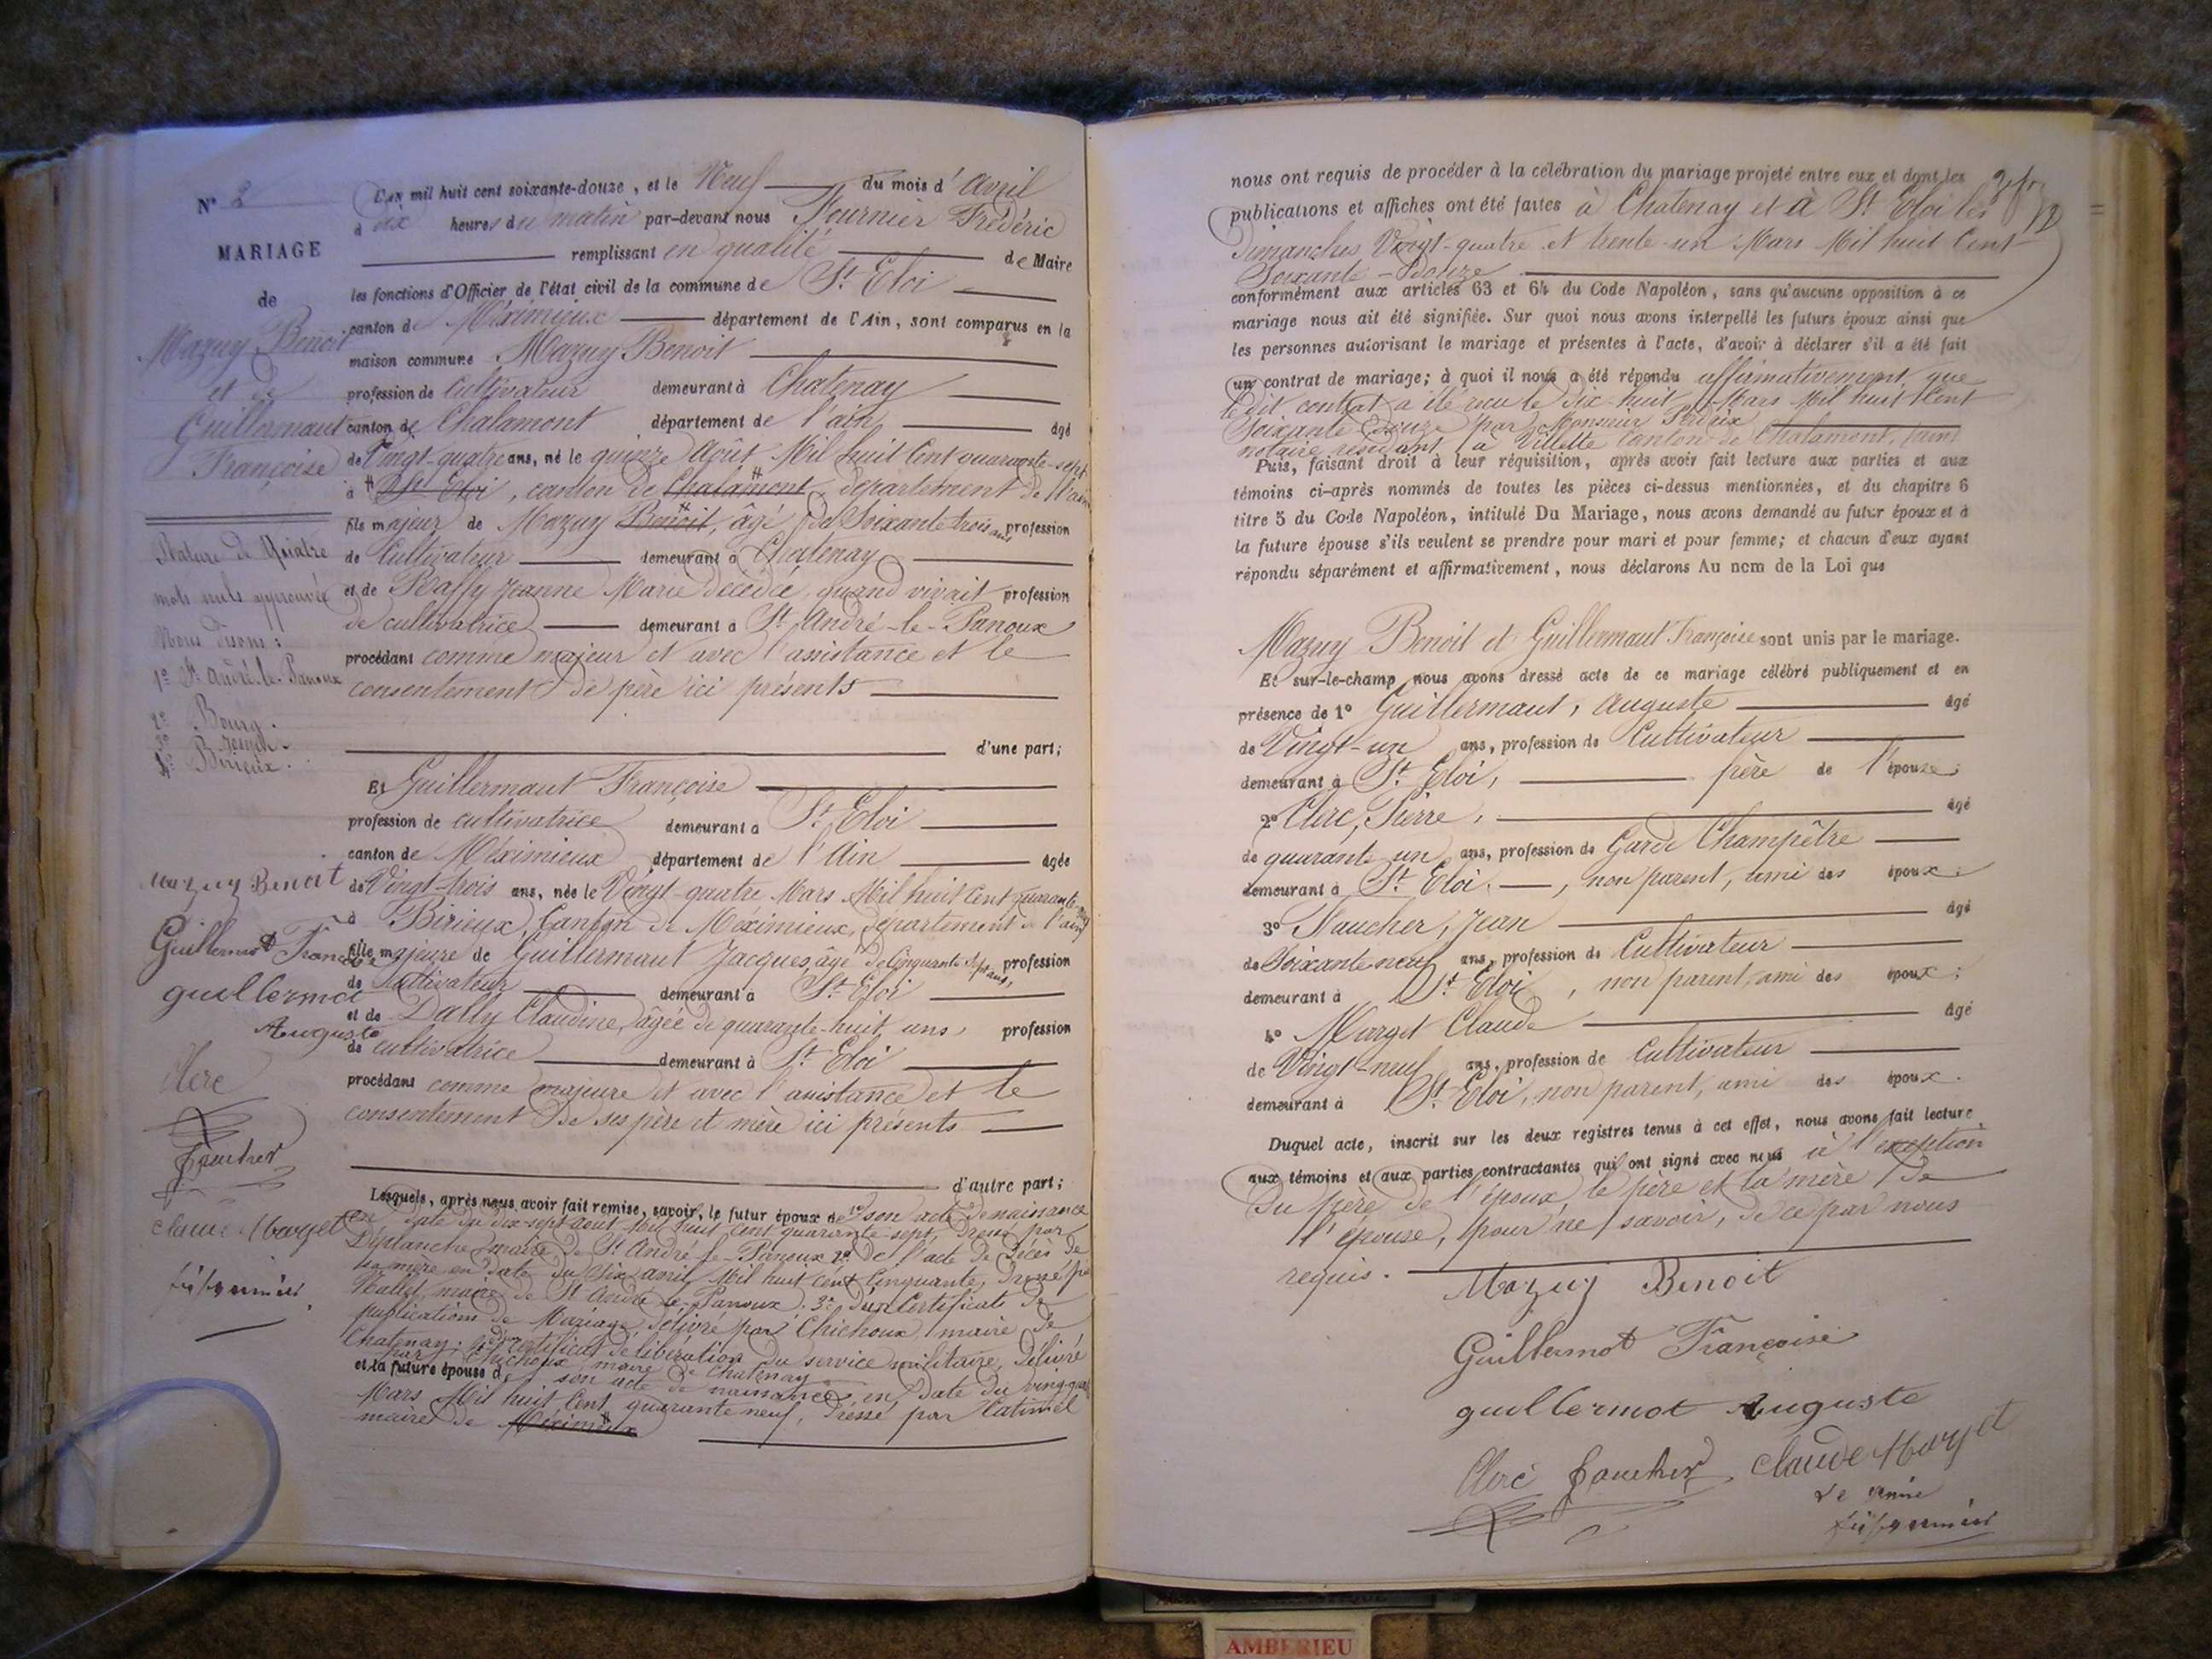 N° 2
MARIAGE
de
Mazuy Benoit
et de
Guillermaut
Françoise
Rature de Quatre
mots nuls approuvée
Nous disons :
1° St André-le-Panoux
2° Bourg.
3° Joseph.
4° Birieux.
Mazuy Benoit
Guillermot Françoise
guillermot
Auguste
Clerc
Faucher
Claude Marget
L'an mil huit cent soixante-douze, et le Neuf du mois d'Avril
à dix heures du matin par-devant nous Fournier Frédéric
remplissant en qualité de Maire
les fonctions d'Officier de l'état civil de la commune de St Eloi
canton de Méximieux département de l'Ain, sont comparus en la
maison commune Mazuy Benoit
profession de Cultivateur demeurant à Chatenay
canton de Chalamont département de l'ain âgé
de Vingt-quatre ans, né le quinze Août Mil huit Cent quarante-sept
à St Eloi, canton de Chalamont, département de l'ain
fils majeur de Mazuy Benoit, âgé de Soixante trois ans profession
de Cultivateur demeurant à Chatenay
et de Jeanne Marie décédée, quand vivait profession
de cultivatrice demeurant à St André-le-Panoux
procédant comme majeur et avec l'assistance et le
consentement de père ici présents
d'une part;
Et Guillermaut Françoise
profession de cultivatrice demeurant à St Eloi
canton de Méximieux département de l'Ain âgée
de Vingt-trois ans, née le Vingt-quatre Mars Mil huit Cent quarante-neuf
à Birieux, Canton de Méximieux, département de l'ain
fille majeure de Guillermaut Jacques, âgé de Cinquante sept ans, profession
de Cultivateur demeurant à St Eloi
et de Dally Claudine, âgée de quarante-huit ans, profession
de cultivatrice demeurant à St Eloi
procédant comme majeure et avec l'assistance et le
consentement de ses père et mère ici présents
d'autre part;
Lesquels, après nous avoir fait remise, savoir, le futur époux de 1° son acte de naissance
en date du dix-sept août Mil huit Cent quarante-sept, dressé par
Duplanche, maire de St André-le-Panoux 2° de l'acte de décès de
sa mère en date du Six avril Mil huit Cent Cinquante, dressé par
maire de St André-le-Panoux. 3° d'un Certificat de
publications de Mariage délivré par Chichoux, maire de
Chatenay; 4° d'un Certificat de libération du service militaire, délivré
par Chichoux, maire de Chatenay
et la future épouse de son acte de naissance, en date du vingt-quatre
Mars Mil huit Cent quarante neuf, dressé par
maire de Méximieux
nous ont requis de procéder à la célébration du mariage projeté entre eux et dont les
publications et affiches ont été faites à Chatenay et à St Eloi les
Dimanches Vingt-quatre et trente-un Mars Mil huit Cent
Soixante-Douze
conformément aux articles 63 et 64 du Code Napoléon, sans qu'aucune opposition à ce
mariage nous ait été signifiée. Sur quoi nous avons interpellé les futurs époux ainsi que
les personnes autorisant le mariage et présentes à l'acte, d'avoir à déclarer s'il a été fait
un contrat de mariage; à quoi il nous a été répondu affirmativement, que
le dit contrat a été reçu le Dix-huit Mars Mil huit Cent
Soixante Douze par Monsieur Perdrix
notaire résidant à Villette Canton de Chalamont, (ain)
Puis, faisant droit à leur réquisition, après avoir fait lecture aux parties et aux
témoins ci-après nommés de toutes les pièces ci-dessus mentionnées, et du chapitre 6
titre 5 du Code Napoléon, intitulé Du Mariage, nous avons demandé au futur époux et à
la future épouse s'ils veulent se prendre pour mari et pour femme; et chacun d'eux ayant
répondu séparément et affirmativement, nous déclarons Au nom de la Loi que
Mazuy Benoit et Guillermaut Françoise sont unis par le mariage.
Et sur-le-champ nous avons dressé acte de ce mariage célébré publiquement et en
présence de 1° Guillermaut, Auguste âgé
de Vingt-un ans, profession de Cultivateur
demeurant à St Eloi, frère de l'épouse;
2° Clerc, Pierre, âgé
de quarante-un ans, profession de Garde Champêtre
demeurant à St Eloi, non parent, ami des époux;
3° Faucher, Jean âgé
de Soixante neuf ans, profession de Cultivateur
demeurant à St Eloi, non parent, ami des époux;
4° Marget Claude âgé
de Vingt-neuf ans, profession de Cultivateur
demeurant à St Eloi, non parent, ami des époux.
Duquel acte, inscrit sur les deux registres tenus à cet effet, nous avons fait lecture
aux témoins et aux parties contractantes qui ont signé avec nous à l'exeption
du père de l'époux, le père et la mère de
l'épouse, pour ne savoir, de ce par nous
requis.
Mazuy Benoit
Guillermot Françoise
guillermot Auguste
Clerc Faucher Claude Marget
AMBERIEU